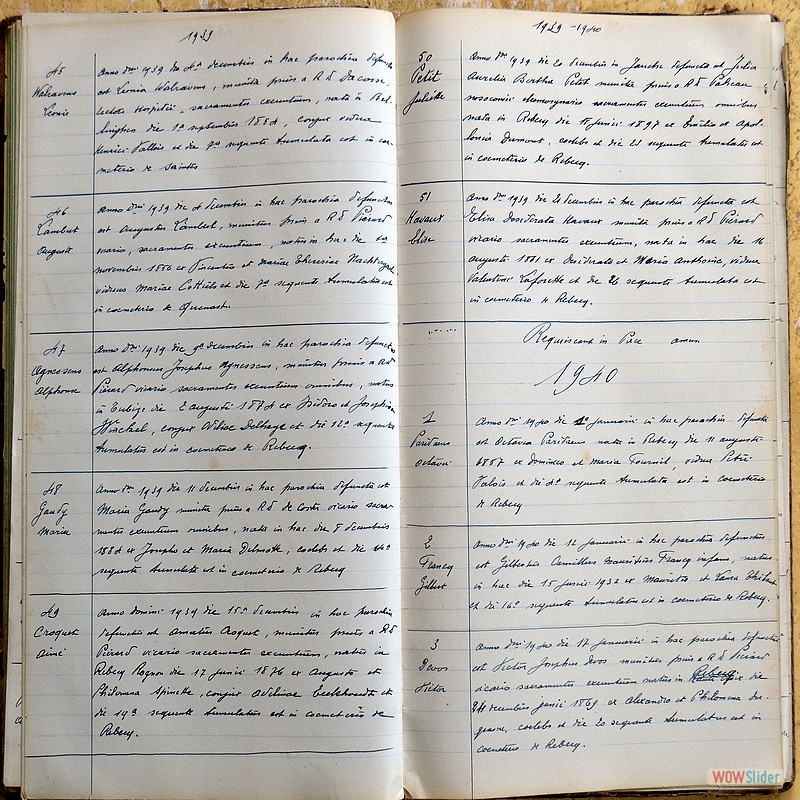 1939
45
Walravens
Léonie
Anno Dni 1939 die 4a decembris in hac parochia defuncta
est Leonia Walravens, munita prius a R d Dacosse,
Hospitii, sacramentis exeuntium, nata in
die 1a septembris 1854, conjux vidua
Henrici Vallois et die 7a sequente tumulata est in coe-
meterio de Saintes
46
Lambert
August
Anno Dni 1939 die 4 decembris in hac parochia defunctus
est Augustus Lambert, munitus prius a R d Piérard
vicario, sacramentis exeuntium, natus in hac die
novembris 1856 ex Vincentio et Maria Theresia
viduus Mariae et die 7a sequente tumulatus est
in coemeterio de Quenast.
47
Agnessens
Alphonse
Anno Dni 1939 die 9a decembris in hac parochia defunctus
est Alphonsus Josephus Agnessens, munitus prius a R d
Piérard vicario sacramentis exeuntium omnibus, natus
in Tubize die 2 augusti 1874 ex Isidoro et Josephina
conjux Delhaye et die 12a sequente
tumulatus est in coemeterio de Rebecq.
48
Gaudy
Maria
Anno Dni 1939 die 11 decembris in hac parochia defuncta est
Maria Gaudy munita prius a R d de Coster vicario sacra-
mentis exeuntium omnibus, nata in hac die 8 decembris
1854 ex Josepho et Maria Delmotte, coelebs et die 14a
sequente tumulata est in coemeterio de Rebecq
49
Croquet
Aimé
Anno Domini 1939 die 15a decembris in hac parochia
defunctus est Amatus Croquet, munitus prius a R d
Piérard vicario sacramentis exeuntium, natus in
Rebecq Rognon die 17 junii 1876 ex Augusto et
Philomena Spinette, conjux Adelinae et
die 19a sequente tumulatus est in coemeterio de
Rebecq.
1939-1940
50
Petit
Juliette
Anno Dni 1939 die 20 decembris in Jauche defuncta est Julia
Aurelia Bertha Petit munita prius a R d
nosocomii eleemosynario sacramentis exeuntium omnibus
nata in Rebecq die 18 junii 1897 ex Emilio et Apol-
lonia Dumont, coelebs et die 23 sequente tumulata est
in coemeterio de Rebecq.
51
Havaux
Elise
Anno Dni 1939 die 20 decembris in hac parochia defuncta est
Elisa Desiderata Havaux munita prius a R d Piérard
vicario sacramentis exeuntium, nata in hac die 16
augusti 1881 ex Desiderato et Maria Anthoine, vidua
Valentini Lafosette et die 26 sequente tumulata est
in coemeterio de Rebecq.
Requiescant in Pace amen.
1940
1
Paridaens
Octavie
Anno Dni 1940 die 1a januarii in hac parochia defuncta
est Octavia Paridaens nata in Rebecq die 11 augusti
1857 ex Dominico et Maria Tournil, vidua Petri
Valois et die 4a sequente tumulata est in coemeterio
de Rebecq
2
Francq
Gilbert
Anno Dni 1940 die 12 januarii in hac parochia defunctus
est Gilbertus Camillus Mauritius Francq infans, natus
in hac die 15 junii 1932 ex Mauritio et Laura
et die 16a sequente tumulatus est in coemeterio de Rebecq.
3
Devos
Victor
Anno Dni 1940 die 17 januarii in hac parochia defunctus
est Victor Josephus Devos munitus prius a R d Piérard
vicario sacramentis exeuntium natus in Rebecq die
24 decembris 1869 ex Alexandro et Philomena De-
grave, coelebs et die 20 sequente tumulatus est in
coemeterio de Rebecq.
WOWSlider